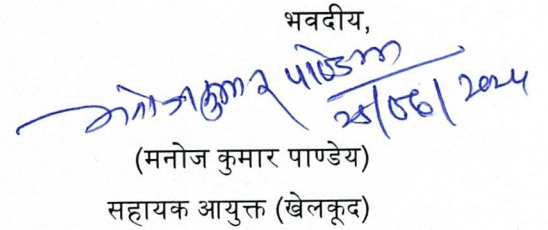 भवदीय,
मनोज कुमार पाण्डेय
25/06/2024
(मनोज कुमार पाण्डेय)
सहायक आयुक्त (खेलकूद)